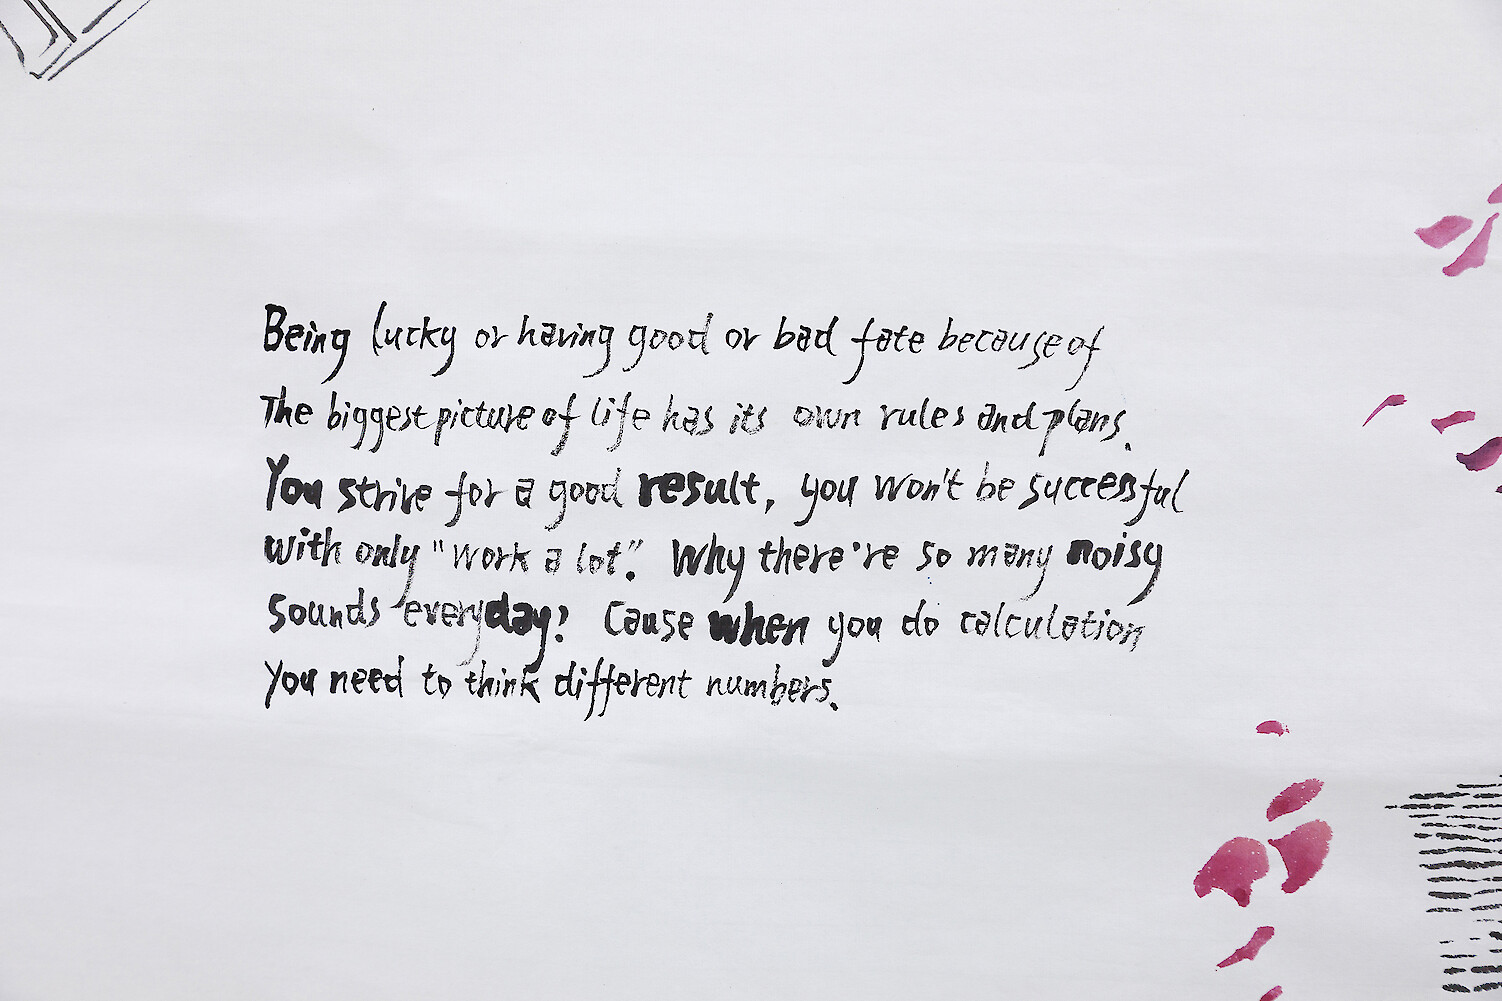 Being lucky or having good or bad fate because of
The biggest picture of life has its own rules and plans.
You strive for a good result, you won't be successful
with only "work a lot". Why there're so many noisy
sounds everyday? Cause when you do calculation
you need to think different numbers.